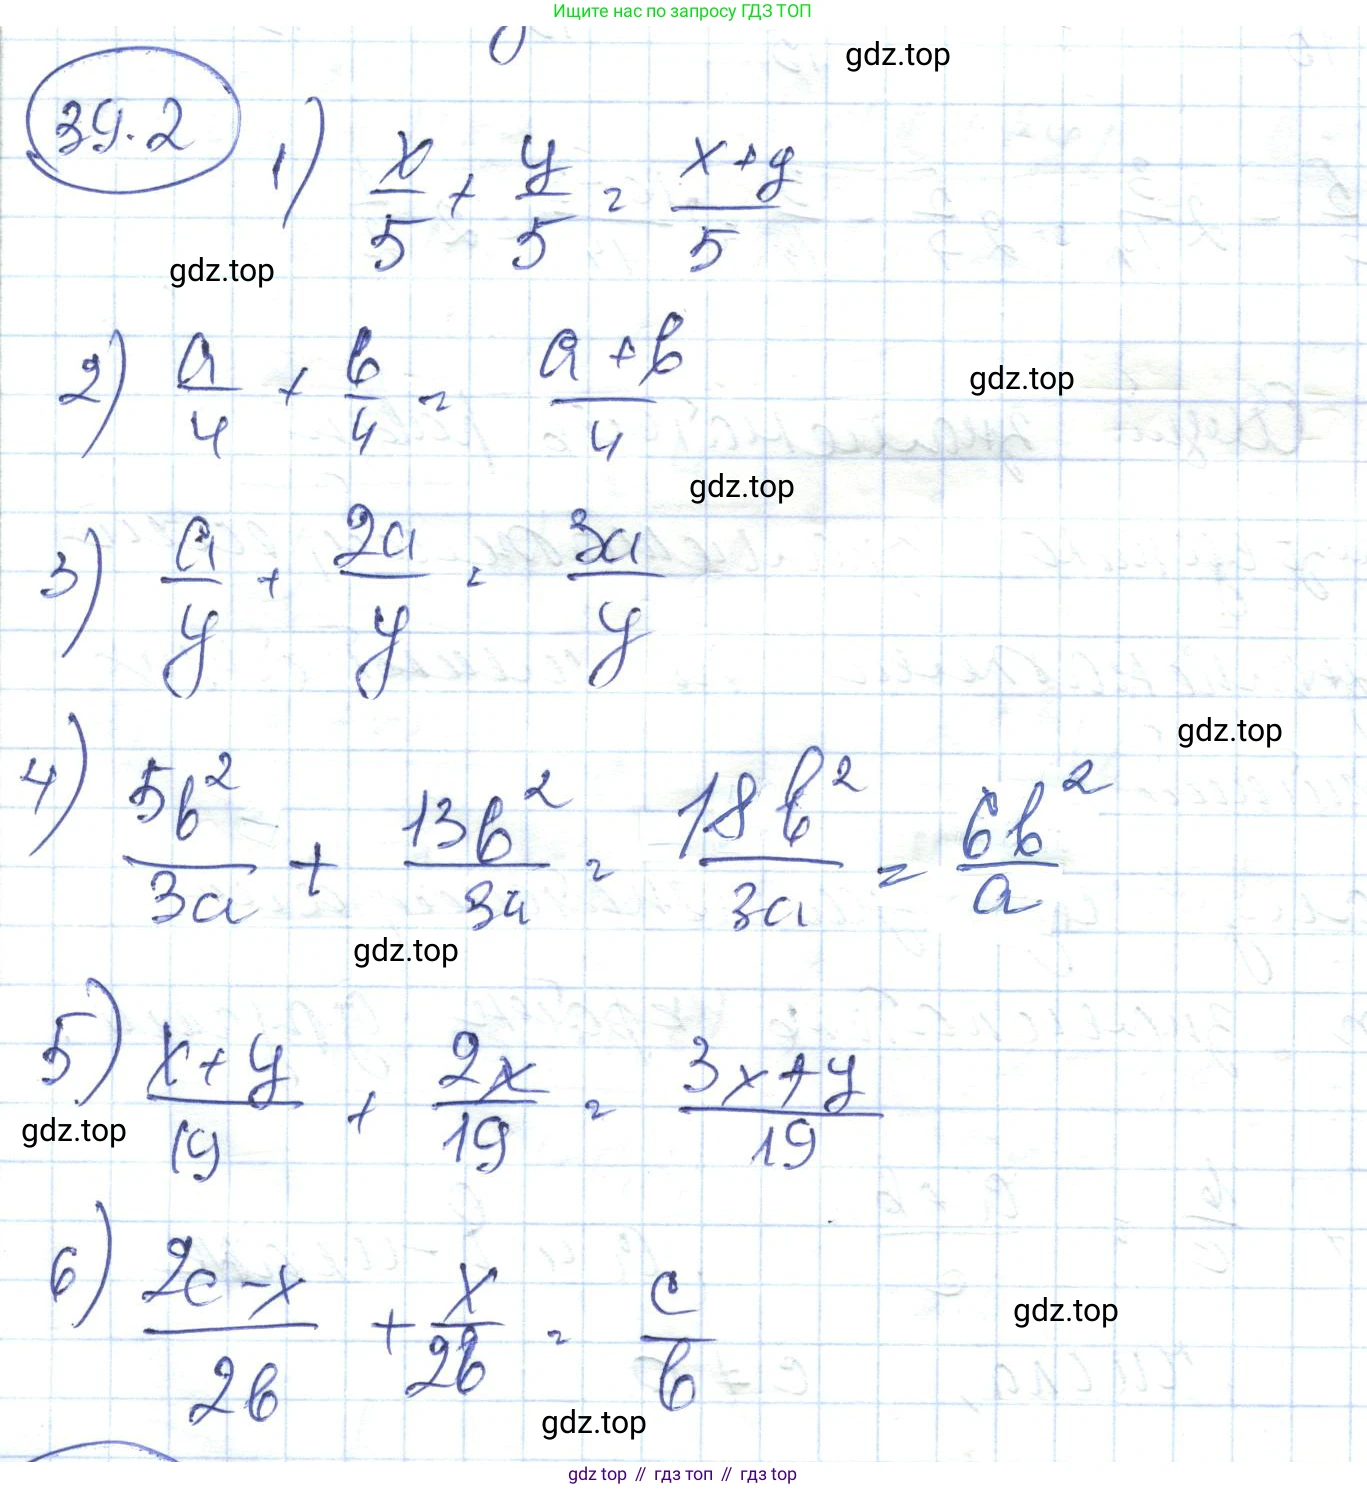 Ищите нас по запросу ГДЗ ТОП
gdz.top
39.2 1) x/5 + y/5 = x+y/5
gdz.top
2) a/4 + b/4 = a+b/4
gdz.top
gdz.top
3) a/y + 2a/y = 3a/y
gdz.top
4) 5b²/3a + 13b²/3a = 18b²/3a = 6b²/a
gdz.top
5) x+y/19 + 2x/19 = 3x+y/19
gdz.top
6) 2c-x/2b + x/2b = c/b
gdz.top
gdz.top
gdz top // гдз топ // gdz top